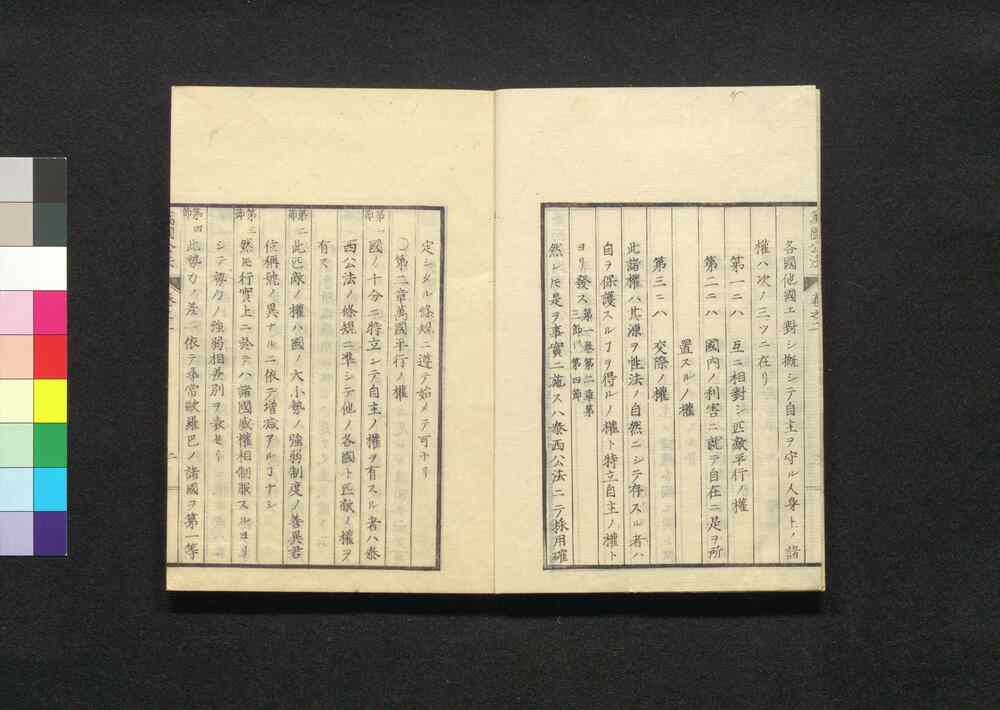 各國他國エ對シ擬シテ自主ヲ守ル人身上ノ諸
權ハ次ノ三ツニ在リ
第一ニハ 互ニ相對シ匹敵平行ノ權
第二ニハ 國内ノ利害ニ就テ自在ニ是ヲ所
置スルノ權
第三ニハ 交際ノ權
此諸權ハ其源ヲ性法ノ自然ニシテ存スル者ハ
自ヲ保護スルヿヲ得ルノ權ト特立自主ノ權ト
ヨリ發ス第一巻第二章第
三節第四節
然レ𪜈是ヲ事實ニ施スハ泰西公法ニテ採用確
定シタル條規ニ遵テ始メテ可ナリ
〇第二章萬國平行ノ權
第一節
國ノ十分ニ特立シテ自主ノ權ヲ有スル者ハ泰
西公法ノ條規ニ準シテ他ノ各國ト匹敵ノ權ヲ
有ス
第二節
此匹敵ノ權ハ國ノ大小勢ノ強弱制度ノ善異君
位稱號ノ異ナルニ依テ増減アルヿナシ
第三節
然𪜈行實上ニ於テハ諸國威權相制服スルヨリ
シテ勢力ノ強弱相差別ヲ表セリ
第四節
此勢力ノ差ニ依テ尋常歐羅巴ノ諸國ヲ第一等